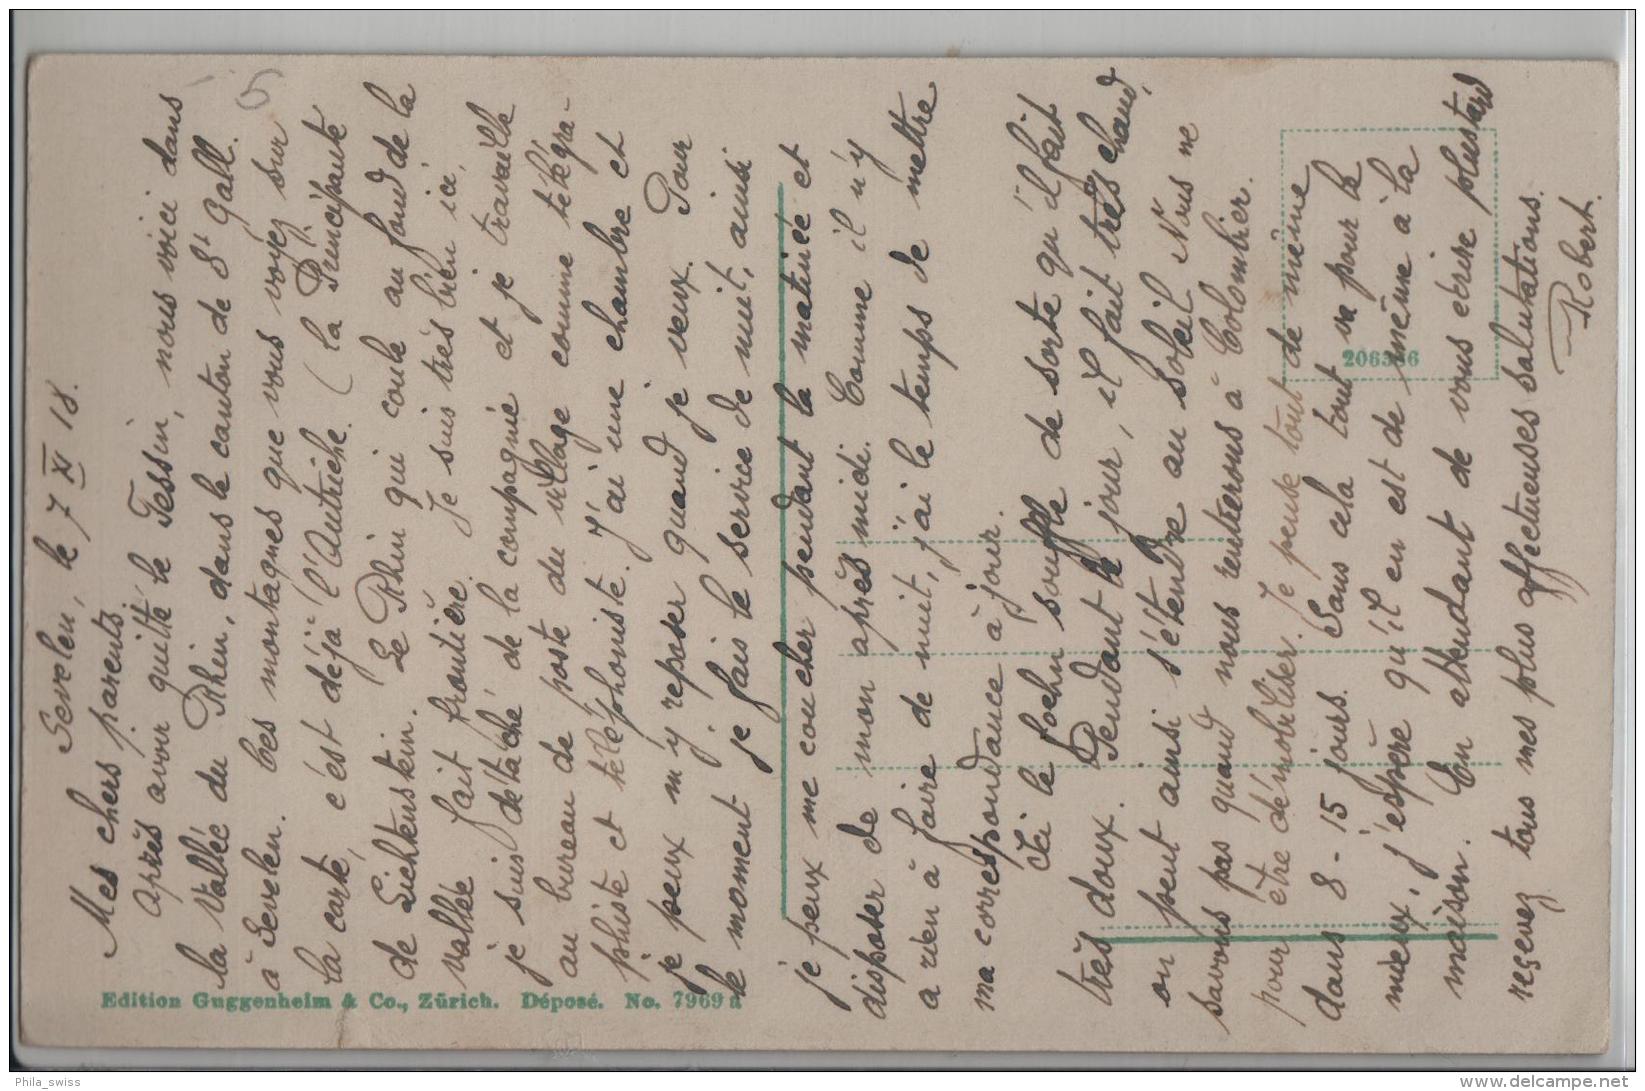 Sevelen, le 7 XI 18.
Mes chers parents.
Après avoir quitté le Tessin, nous voici dans
la Vallée du Rhin, dans le canton de St Gall.
à Sevelen. Les montagnes que vous voyez sur
la carte, c'est déjà l'Autriche. (la Principauté
de Lichtenstein. Le Rhin qui coule au fond de la
vallée fait frontière. Je suis très bien ici,
je suis détaché de la compagnie et je travaille
au bureau de poste du village comme télégra-
phiste et téléphoniste. J'ai une chambre et
je peux m'y reposer quand je veux. Pour
le moment je fais le service de nuit, ainsi
je peux me coucher pendant la matinée et
disposer de mon après midi. Comme il n'y
a rien à faire de nuit, j'ai le temps de mettre
ma correspondance à jour.
Ici le foehn souffle de sorte qu'il fait
très doux. Pendant le jour, il fait très chaud,
on peut ainsi s'étendre au soleil. Nous ne
savons pas quand nous rentrerons à Colombier.
pour être démobiliser. Je pense tout de même
dans 8-15 jours. Sans cela tout va pour le
mieux, j'espère qu'il en est de même à la
maison. En attendant de vous écrire plus tard
reçevez tous mes plus affectueuses salutations.
Robert.
5
Edition Guggenheim & Co., Zürich. Déposé. No. 7969 a
Phila_swiss
delcampe.net